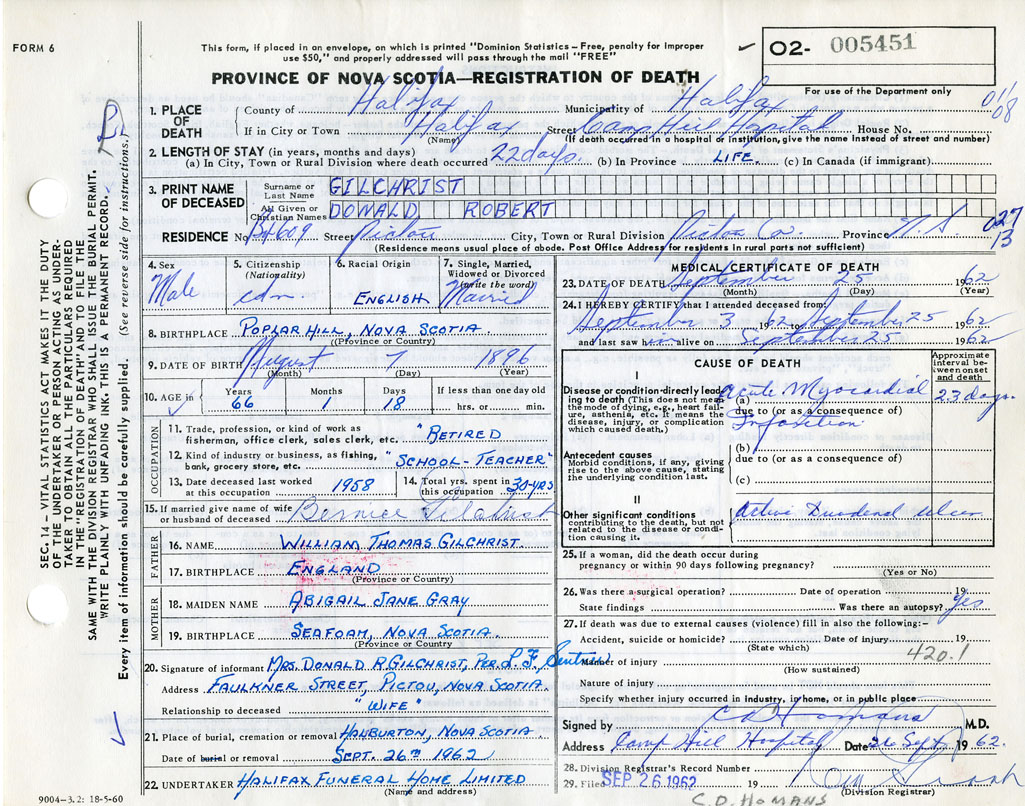 FORM 6
This form, if placed in an envelope, on which is printed "Dominion Statistics – Free, penalty for improper
use $50," and properly addressed will pass through the mail "FREE"
PROVINCE OF NOVA SCOTIA—REGISTRATION OF DEATH
✓ 02- 005451
For use of the Department only
SEC. 14 – VITAL STATISTICS ACT MAKES IT THE DUTY
OF THE UNDERTAKER OR PERSON ACTING AS UNDER-
TAKER TO OBTAIN ALL THE PARTICULARS REQUIRED
IN THE "REGISTRATION OF DEATH" AND TO FILE THE
SAME WITH THE DIVISION REGISTRAR WHO SHALL ISSUE THE BURIAL PERMIT.
WRITE PLAINLY WITH UNFADING INK. THIS IS A PERMANENT RECORD.
Every item of information should be carefully supplied. (See reverse side for instructions.)
1. PLACE OF DEATH County of Halifax Municipality of Halifax 011 08
If in City or Town Halifax Street Camp Hill Hospital House No.
(Name) (If death occurred in a hospital or institution, give the name instead of street and number)
2. LENGTH OF STAY (in years, months and days)
(a) In City, Town or Rural Division where death occurred 22 days. (b) In Province LIFE. (c) In Canada (if immigrant)
3. PRINT NAME OF DECEASED Surname or Last Name GILCHRIST
All Given or Christian Names DONALD ROBERT
RESIDENCE No. Street Pictou City, Town or Rural Division Pictou Co. Province N.S. 027 13
(Residence means usual place of abode. Post Office Address for residents in rural parts not sufficient)
4. Sex Male
5. Citizenship (Nationality) cdn.
6. Racial Origin ENGLISH
7. Single, Married, Widowed or Divorced (write the word) Married
8. BIRTHPLACE POPLAR HILL, NOVA SCOTIA
(Province or Country)
9. DATE OF BIRTH August 7 1896
(Month) (Day) (Year)
10. AGE in ✓ Years 66 Months 1 Days 18 If less than one day old hrs. or min.
OCCUPATION
11. Trade, profession, or kind of work as
fisherman, office clerk, sales clerk, etc. "RETIRED
12. Kind of industry or business, as fishing,
bank, grocery store, etc. "SCHOOL-TEACHER"
13. Date deceased last worked
at this occupation 1958
14. Total yrs. spent in
this occupation 30-YRS
15. If married give name of wife
or husband of deceased Bernice Gilchrist
FATHER
16. NAME WILLIAM THOMAS GILCHRIST.
17. BIRTHPLACE ENGLAND
(Province or Country)
MOTHER
18. MAIDEN NAME ABIGAIL JANE GRAY
19. BIRTHPLACE SEAFOAM, NOVA SCOTIA.
(Province or Country)
20. Signature of informant MRS. DONALD R. GILCHRIST, PER. L.F.
Address FAULKNER STREET, PICTOU, NOVA SCOTIA.
Relationship to deceased "WIFE"
21. Place of burial, cremation or removal HALIBURTON, NOVA SCOTIA.
Date of burial or removal SEPT. 26TH 1962
22. UNDERTAKER HALIFAX FUNERAL HOME LIMITED
(Name and address)
9004–3.2: 18-5-60
MEDICAL CERTIFICATE OF DEATH
23. DATE OF DEATH September 25 1962
(Month) (Day) (Year)
24. I HEREBY CERTIFY that I attended deceased from:
September 3 1962 to September 25 1962
and last saw him alive on September 25 1962
CAUSE OF DEATH
Approximate interval between onset and death
I
Disease or condition directly leading to death (This does not mean
the mode of dying, e.g., heart failure, asthenia, etc. It means the
disease, injury, or complication which caused death.)
(a) Acute Myocardial 23 days.
due to (or as a consequence of)
(b)
due to (or as a consequence of)
(c)
Antecedent causes
Morbid conditions, if any, giving
rise to the above cause, stating
the underlying condition last.
II
Other significant conditions
contributing to the death, but not
related to the disease or condition causing it.
Active Duodenal ulcer
25. If a woman, did the death occur during
pregnancy or within 90 days following pregnancy?
(Yes or No)
26. Was there a surgical operation? Date of operation 19
State findings Was there an autopsy? yes
27. If death was due to external causes (violence) fill in also the following:-
Accident, suicide or homicide? Date of injury 19
(State which)
420.1
Manner of injury
(How sustained)
Nature of injury
Specify whether injury occurred in industry, in home, or in public place
Signed by C D Homans M.D.
Address Camp Hill Hospital Date 26 Sept 1962.
28. Division Registrar's Record Number
29. Filed SEP 26 1962
(Division Registrar)
C.D. HOMANS